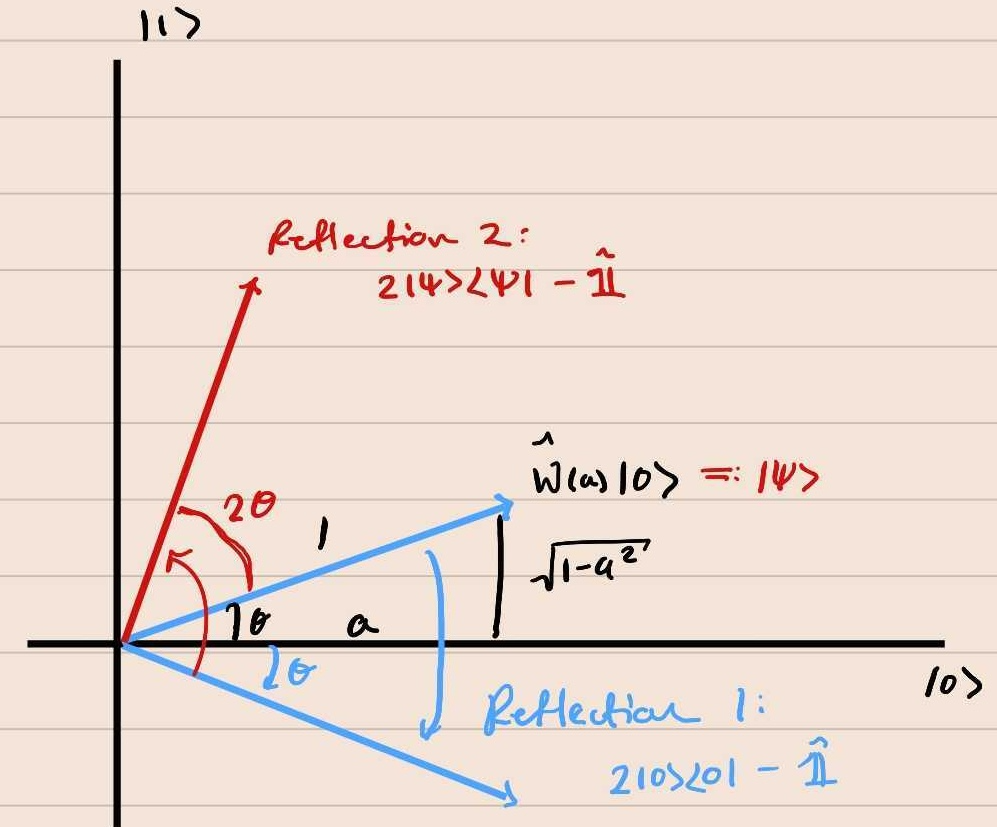 |1>
Reflection 2:
2|ψ><ψ| - 𝟙̂
Ŵ(a)|0> =: |ψ>
2θ
1
√1-a²
θ
a
|0>
θ
Reflection 1:
2|0><0| - 𝟙̂